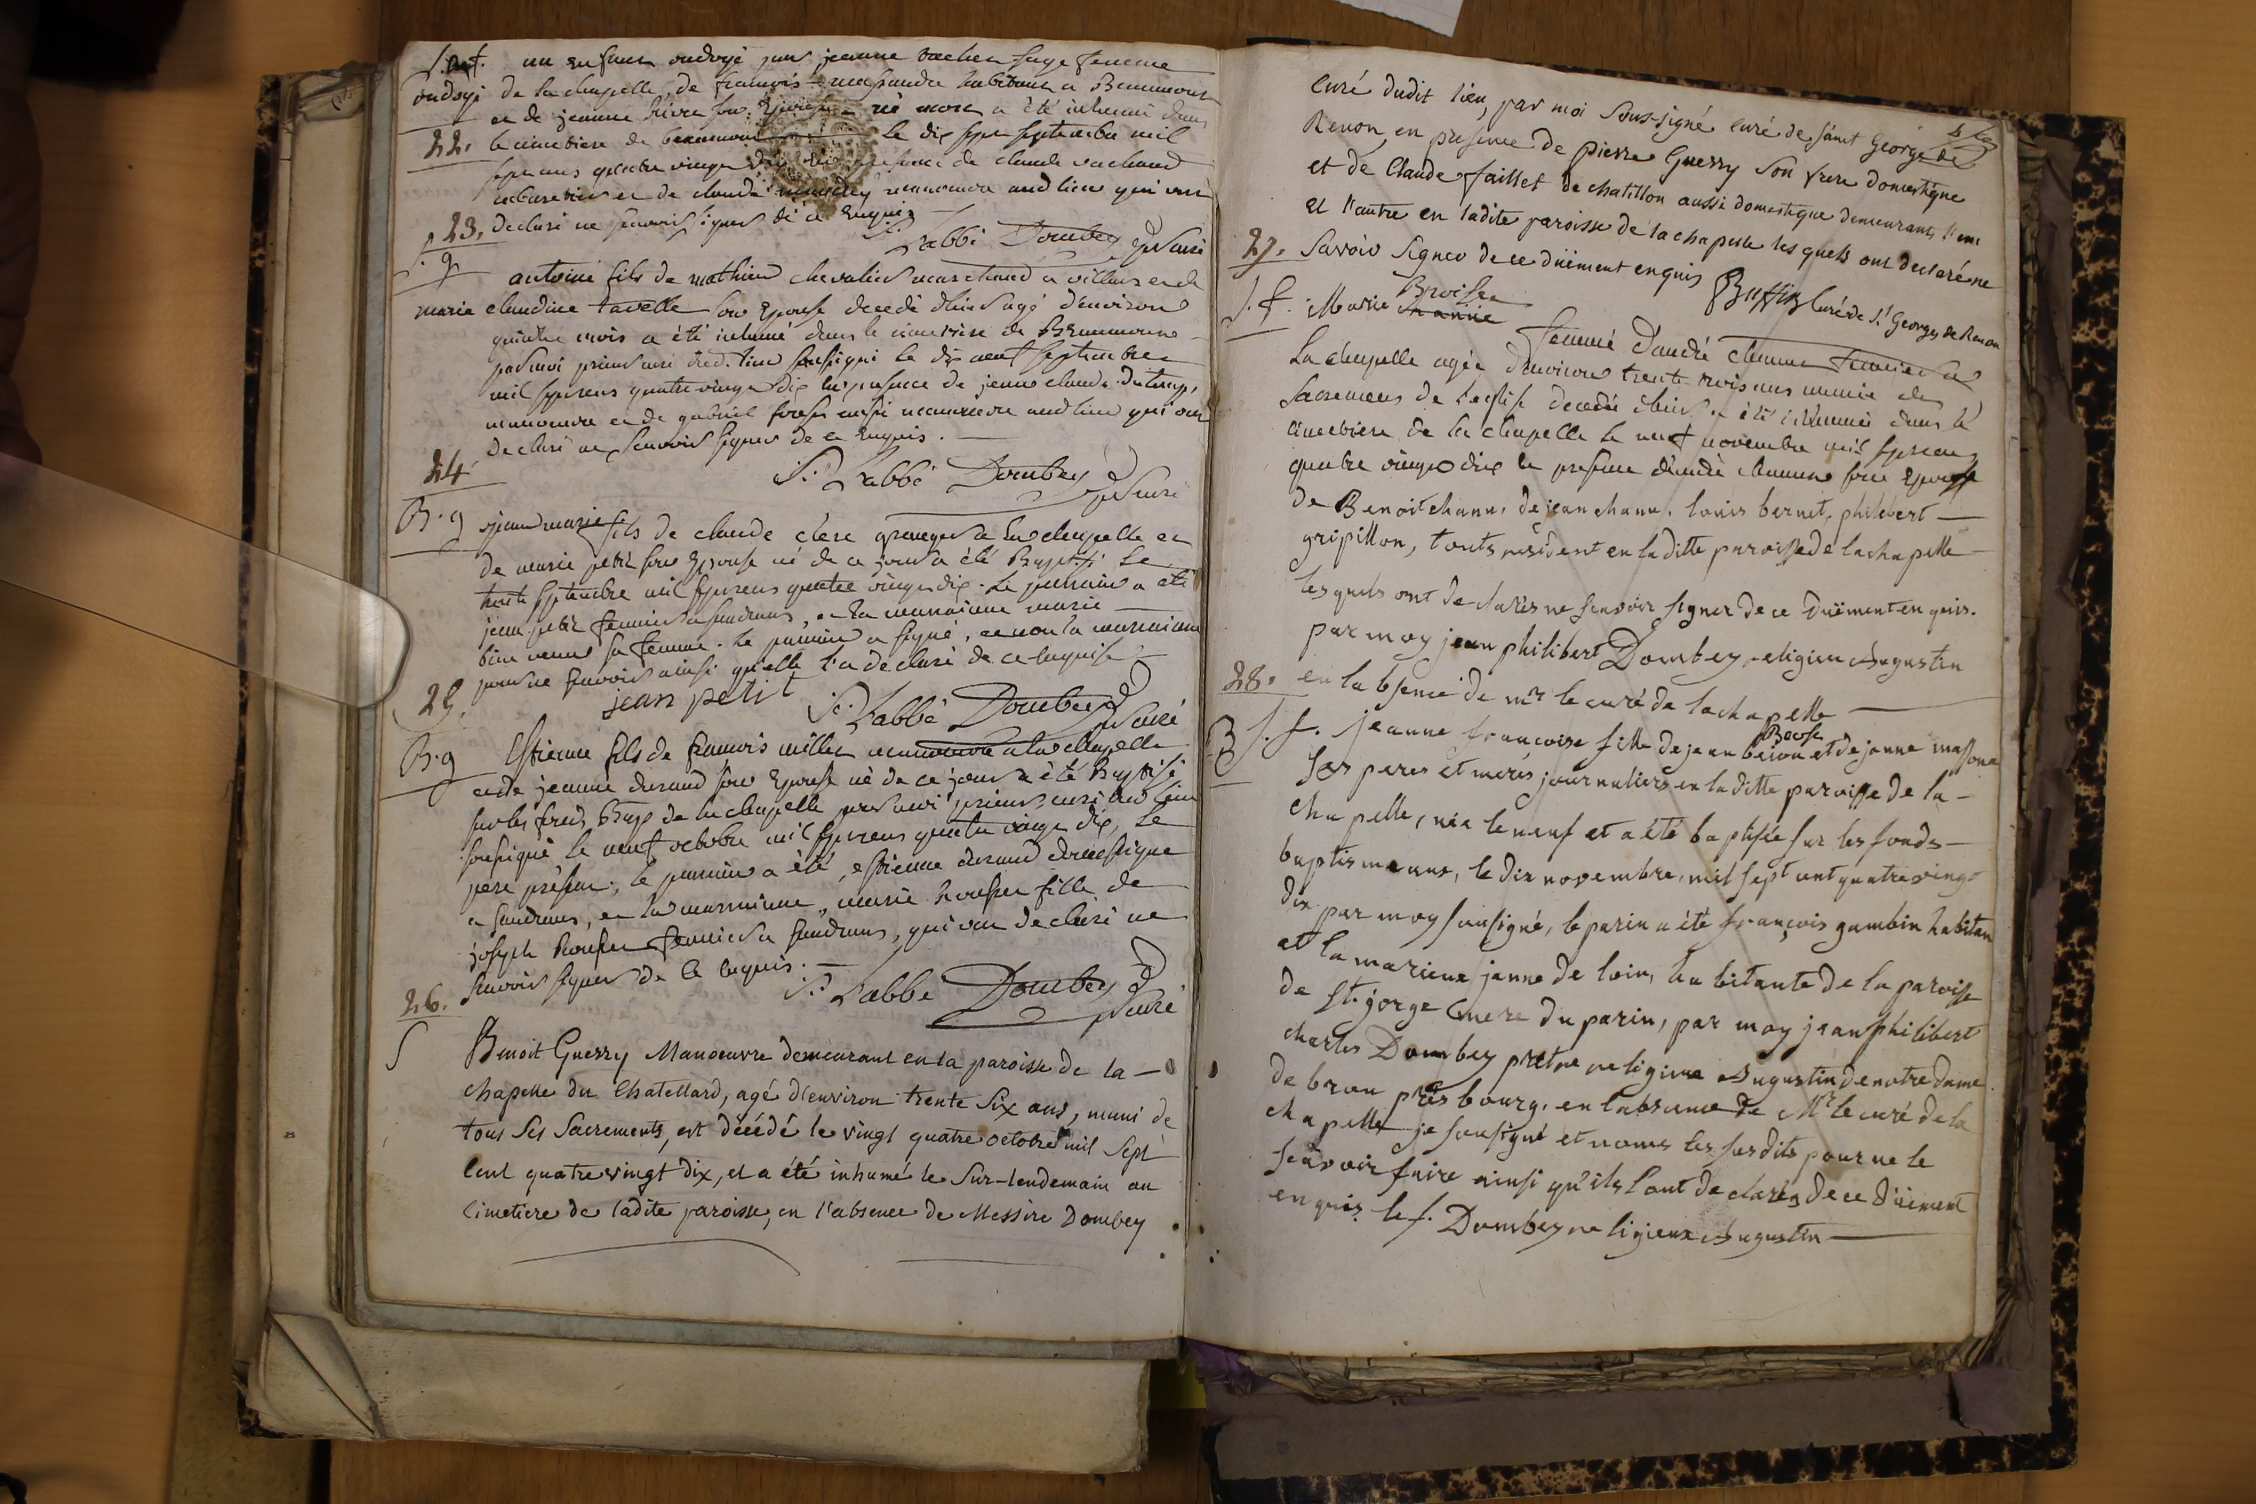 un enfant ondoyé par jeanne vacher sage femme
ondoyé de la chapelle, de françois habitant a Beaumont
et de jeanne son Epouse né mort a été inhumé dans
22. le cimetiere de beaumont le dix sept septembre mil
sept cens quatre vingt dix en presence de claude
et de claude manoeuvre audlieu qui ont
23. declaré ne scavoir signer de ce Enquis
S. L'abbé Dombey p. Curé
S. g
antoine fils de mathieu chevalier marchand a villars et de
marie claudine tavelle son Epouse decedé d'hier agé d'environ
quinze mois a été inhumé dans le cimetiere de Beaumont
par moi prieur curé dud. lieu soussigné le dix neuf septembre
mil sept cens quatre vingt dix en presence de jean claude
manoeuvre et de gabriel aussi manoeuvre audlieu qui ont
declaré ne scavoir signer de ce Enquis.
24
S. L'abbé Dombey p. Curé
B. g jean marie fils de claude clerc granger a la chapelle et
de marie petit son Epouse né de ce jour a été Baptisé le
trente septembre mil sept cens quatre vingt dix. Le parrain a été
jean petit fermier a sandrans, et la marraine marie
bien venue sa femme. Le parrain a signé, et non la marraine
pour ne scavoir ainsi qu'elle l'a declaré de ce enquise
25.
jean petit S. L'abbé Dombey p. Curé
B. g Estienne fils de françois millet manoeuvre a la chapelle
et de jeanne durand son Epouse né de ce jour a été Baptisé
sur les fonds Bapt. de la chapelle par moi prieur curé dud lieu
soussigné le neuf octobre mil sept cens quatre vingt dix, Le
pere présent, le parrain a été, estienne durand domestique
a sandrans, et la marraine, marie fille de
joseph fermier a sandrans, qui ont declaré ne
scavoir signer de ce enquis.
26.
S. L'abbé Dombey p. Curé
S Benoit Guerry Manoeuvre demeurant en la paroisse de la
chapelle du Chatellard, agé d'environ trente six ans, muni de
tous ses Sacrements, est décédé le vingt quatre octobre mil sept
cent quatre vingt dix, et a été inhumé le sur-lendemain au
Cimetiere de ladite paroisse, en l'absence de Messire Dombey
curé dudit lieu, par moi sous-signé curé de saint George de
Renon, en presence de pierre Guerry son frere domestique
et de Claude faillet de chatillon aussi domestique demeurants l'un
et l'autre en ladite paroisse de la chapelle les quels ont declaré ne
27. Savoir signer de ce duëment enquis
Buffin Curé de St George de Renon
S. f. Marie Broisse
femme D'andré chanut fermier a
La chapelle agée d'environ trente trois ans munie des
sacremens de l'eglise decedée d'hier a été inhumée dans le
cimetiere de la chapelle le neuf novembre mil sept cens
quatre vingt dix en presence d'andré chanut son Epoux
de Benoit chanut, de jean chanut, louis bernet, philibert
gripillon, touts résident en la ditte paroisse de la chapelle
lesquels ont declarés ne scavoir signer de ce duëment enquis.
par moy jean philibert Dombey religieu Augustin
28. en labsence de mr le curé de la chapelle
B S. f. jeanne françoise fille de jean et de janne massone
ses peres et meres journaliers en la ditte paroisse de la
chapelle, née le neuf et a été baptisée sur les fonds
baptismeaux, le dix novembre, mil sept cent quatre vingt
dix par moy sousigné, le parin a été françois gambin habitan
et la marine janne de loin, habitante de la paroisse
de St. jorge mere du parin, par moy jean philibert
charles Dombey pretre religieux Augustin de notre dame
de brou près bourg, en labsence de Mr le curé de la
chapelle je sousigné et nomé les susdits pour ne le
scavoir faire ainsi qu'ils l'ont declarés de ce dûement
enquis le f. Dombey religieux Augustin